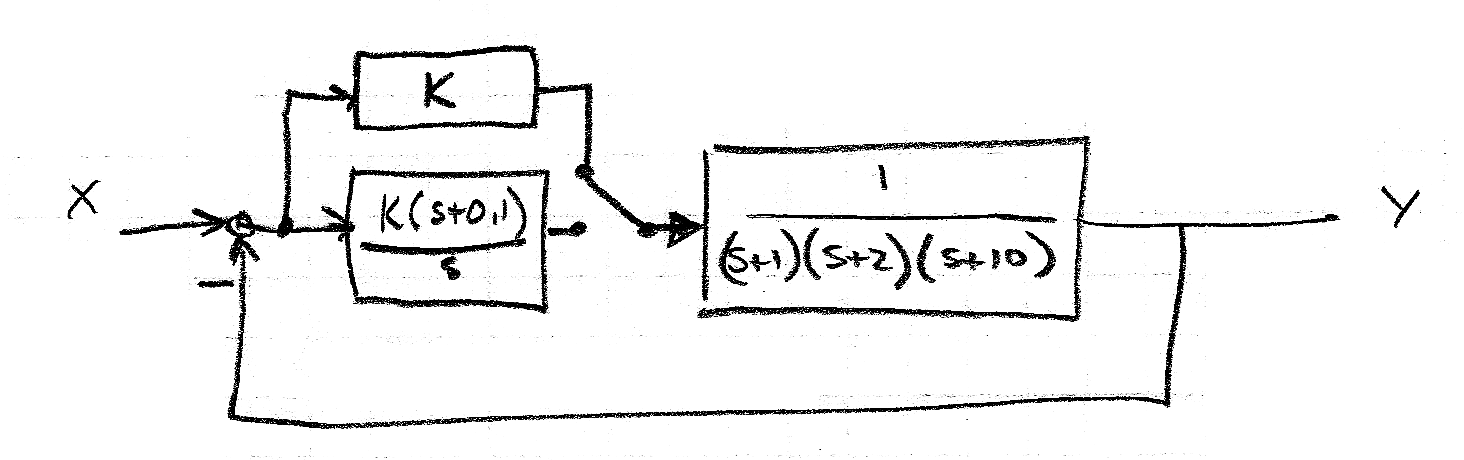 K
X
K(s+0,1)
s
1
(s+1)(s+2)(s+10)
Y
−